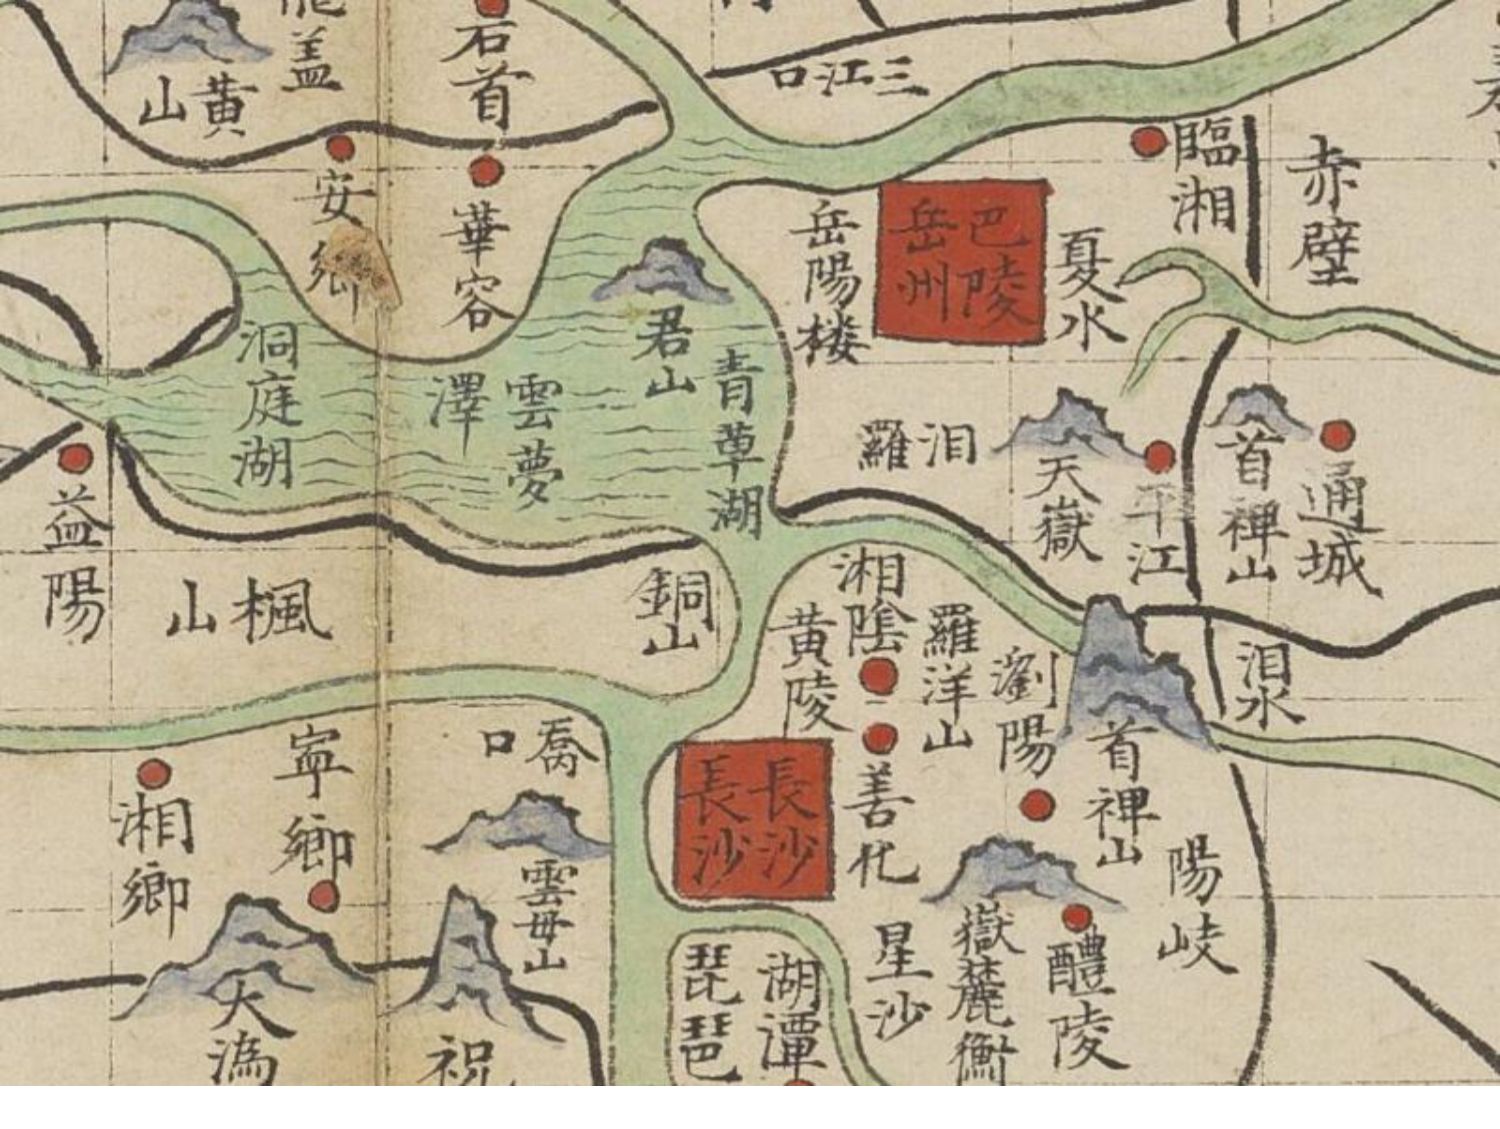 龍蓋
石首
黃山
三江口
臨湘
赤壁
安鄉
華容
岳陽楼
巴陵
岳州
夏水
君山
青草湖
洞庭湖
雲夢
澤
汨羅
天嶽
平江
首禅山
通城
益陽
楓山
銅山
湘陰
黃陵
羅洋山
瀏陽
汨水
首禅山
寧鄉
喬口
長沙
長沙
善化
湘鄉
雲母山
陽岐
大溈
祝
琵琶
湖潭
星沙
嶽麓衡
醴陵